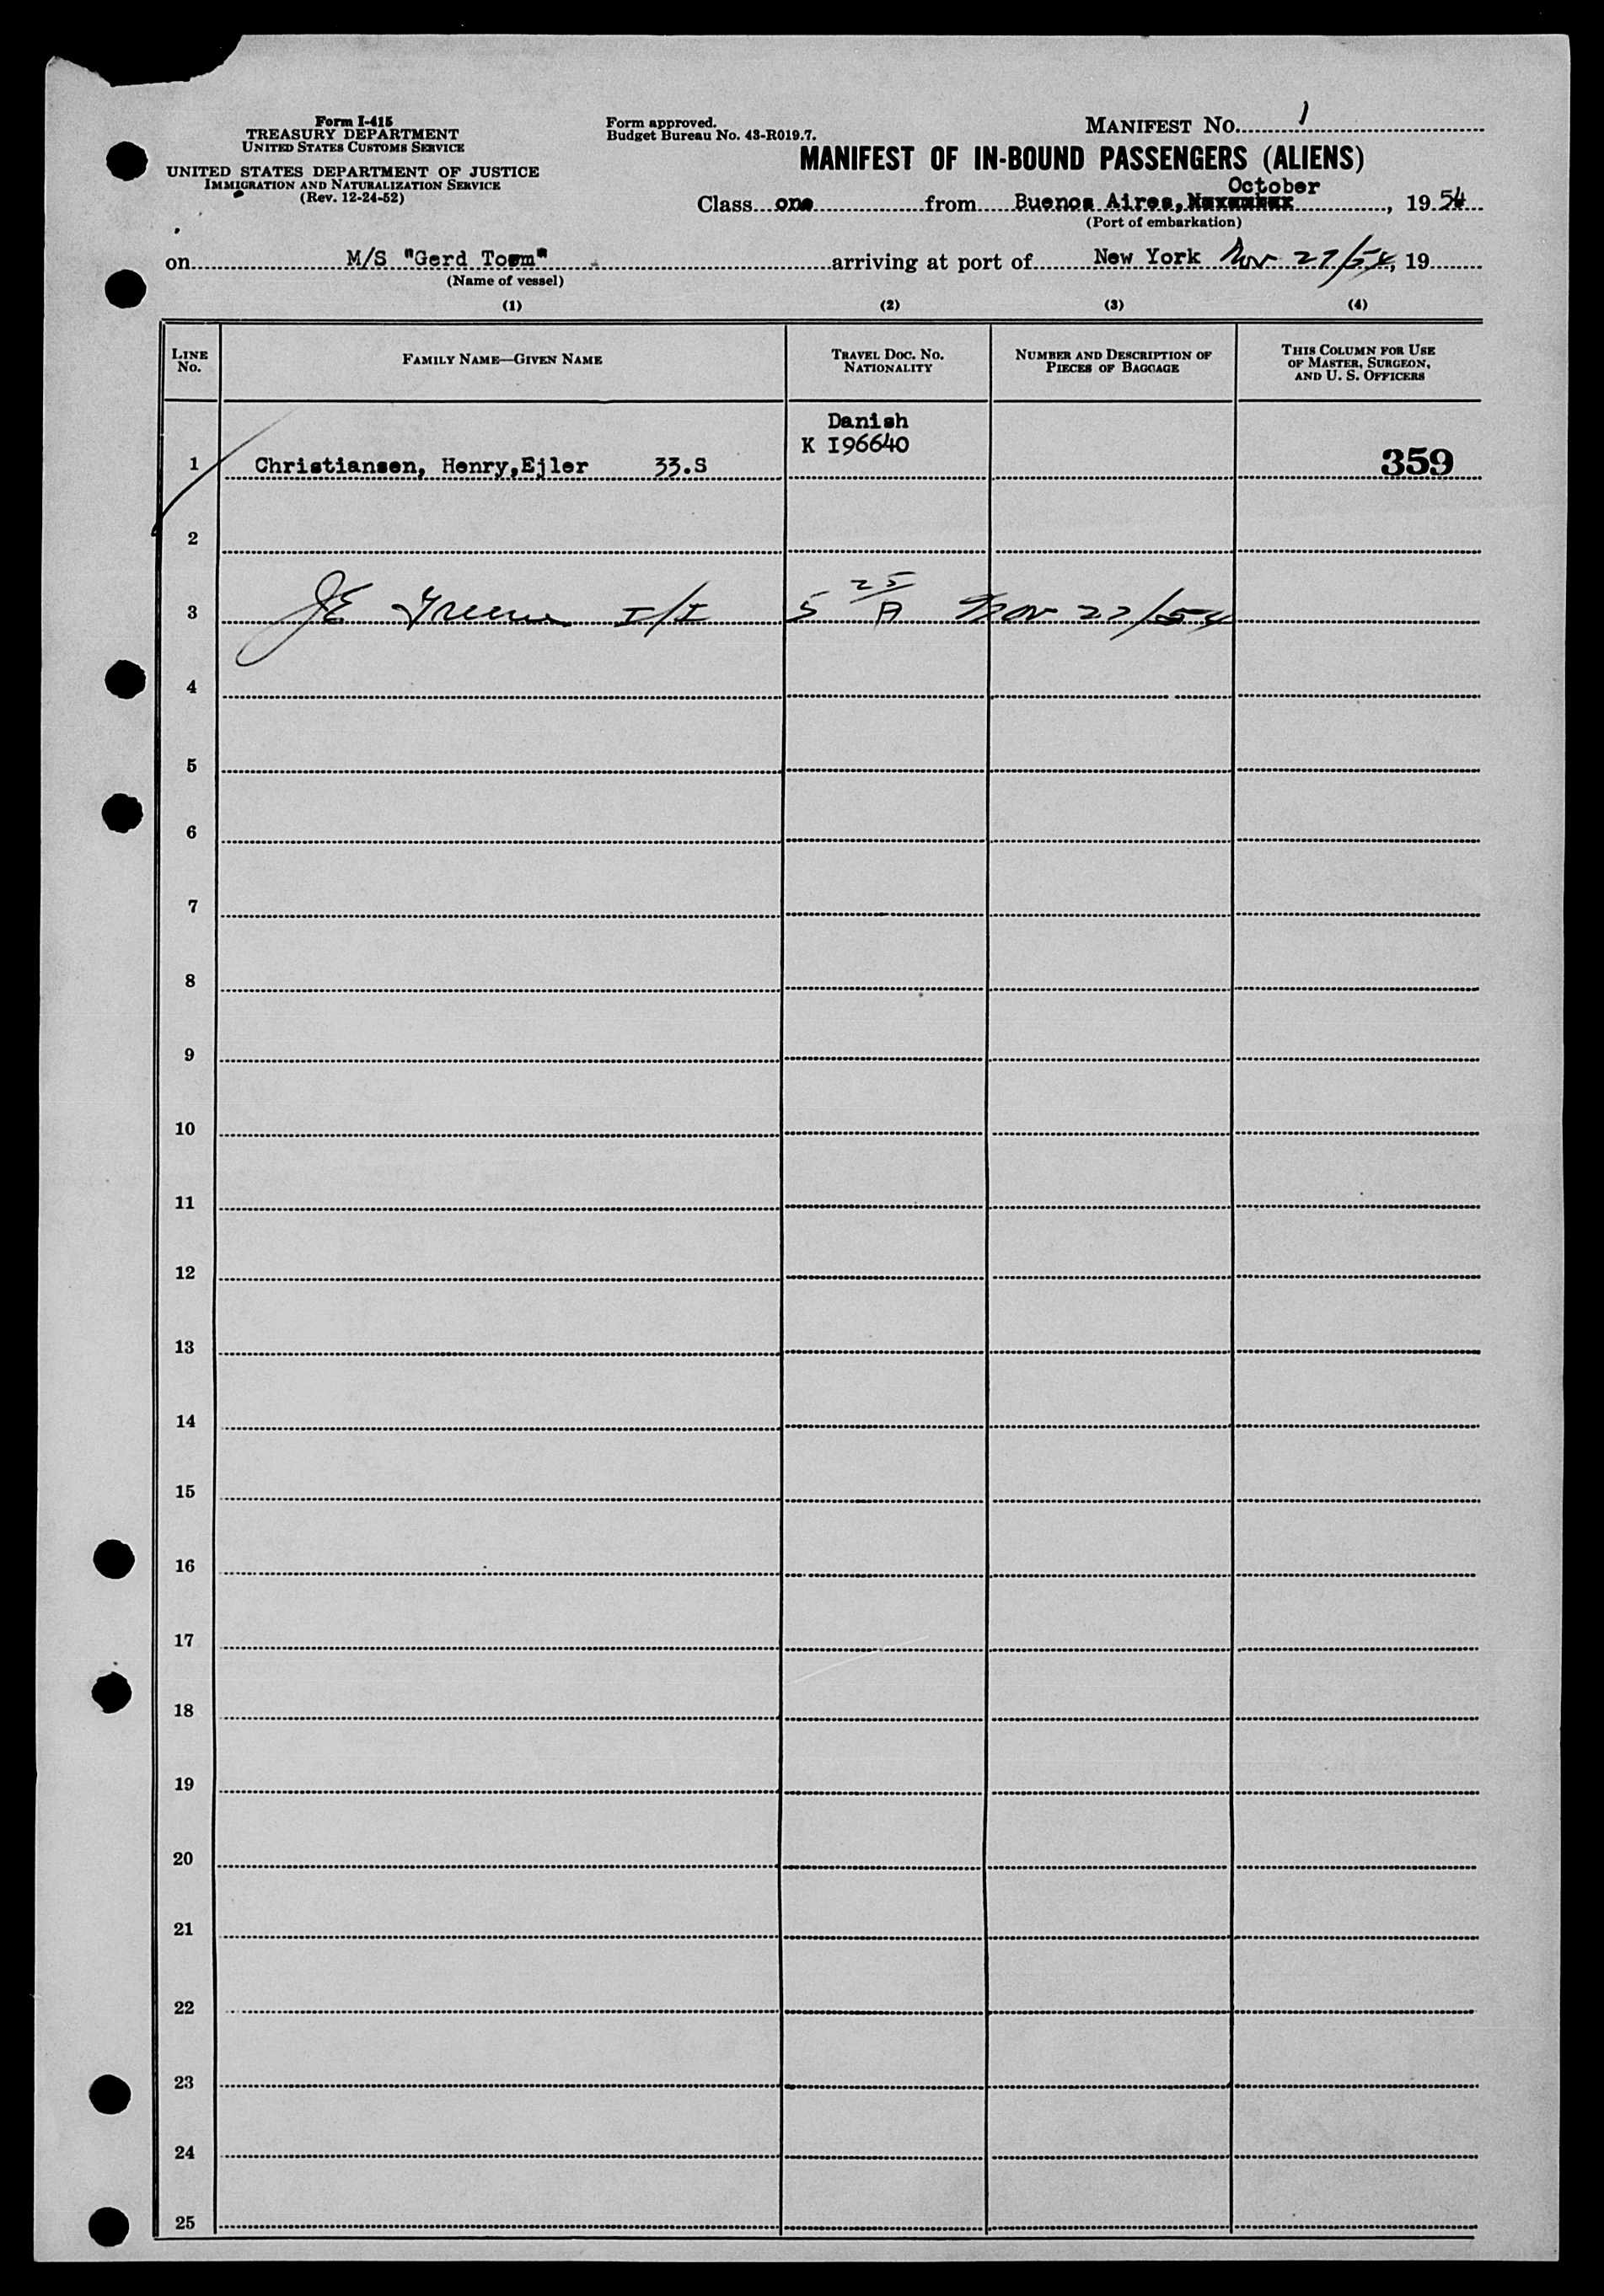 Form I-415
TREASURY DEPARTMENT
UNITED STATES CUSTOMS SERVICE
UNITED STATES DEPARTMENT OF JUSTICE
IMMIGRATION AND NATURALIZATION SERVICE
(Rev. 12-24-52)
Form approved.
Budget Bureau No. 43-R019.7.
MANIFEST NO. 1
MANIFEST OF IN-BOUND PASSENGERS (ALIENS)
October
Class one from Buenos Aires, , 1954
(Port of embarkation)
on M/S "Gerd Toem" arriving at port of New York Nov 27/54, 19
(Name of vessel)
(1) (2) (3) (4)
LINE NO. FAMILY NAME—GIVEN NAME TRAVEL DOC. NO. NATIONALITY NUMBER AND DESCRIPTION OF PIECES OF BAGGAGE THIS COLUMN FOR USE OF MASTER, SURGEON, AND U. S. OFFICERS
Danish
K I96640
1 Christiansen, Henry,Ejler 33.S 359
2
25
3 JE I/I 5 A Nov 27/54
4
5
6
7
8
9
10
11
12
13
14
15
16
17
18
19
20
21
22
23
24
25